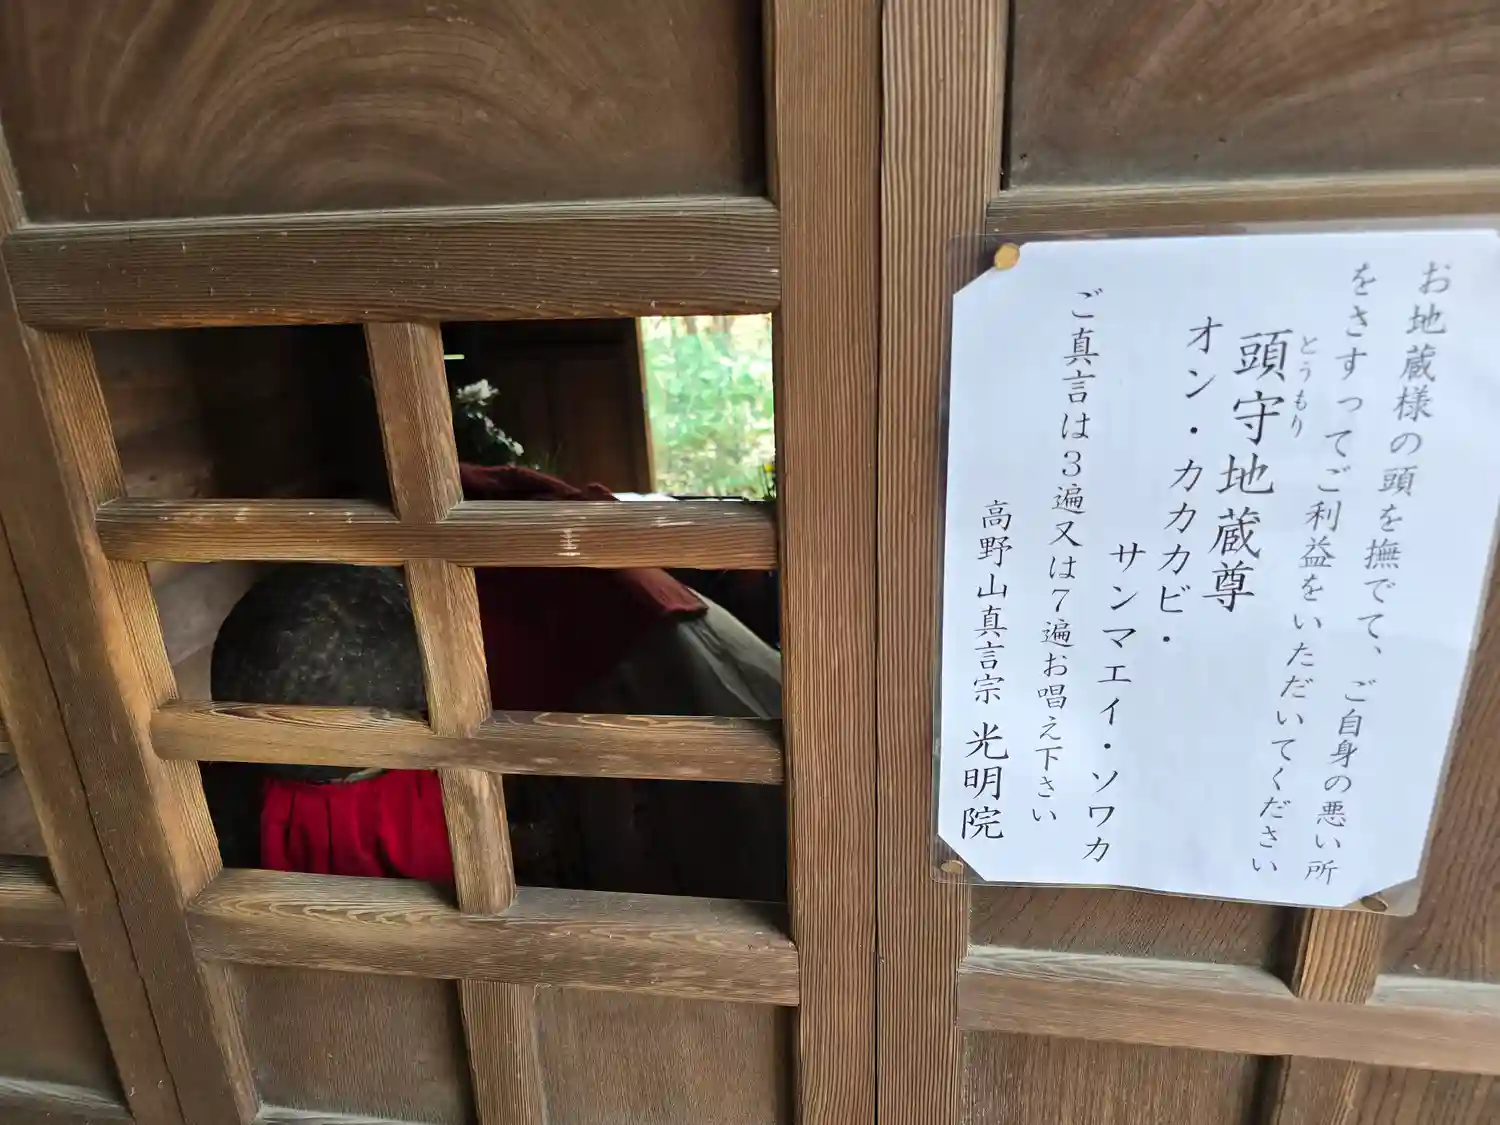 お地蔵様の頭を撫でて、ご自身の悪い所
をさすってご利益をいただいてください
とうもり
頭守地蔵尊
オン・カカカビ・
サンマエイ・ソワカ
ご真言は3遍又は7遍お唱え下さい
高野山真言宗 光明院